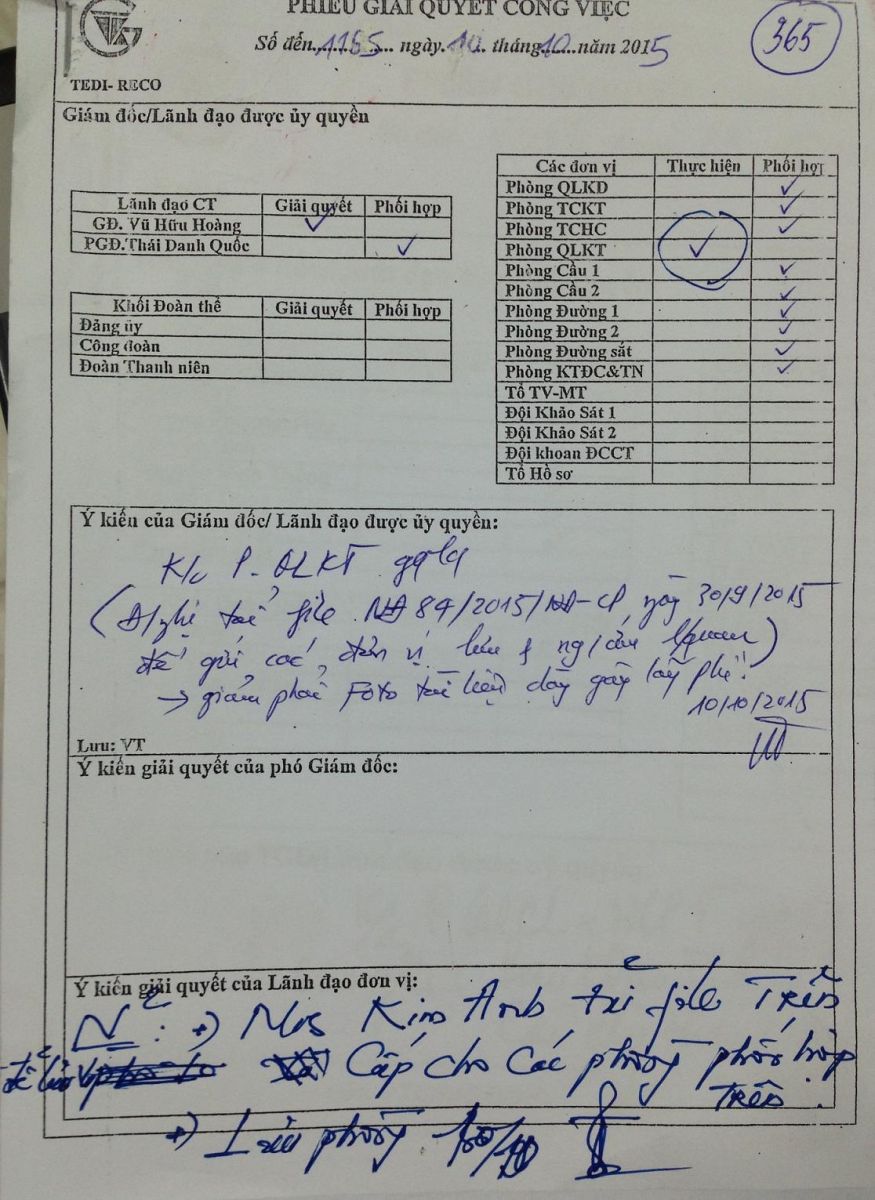 PHIẾU GIẢI QUYẾT CÔNG VIỆC
Số đến...1165... ngày.10.. tháng.10...năm 2015
365
TEDI- RECO
Giám đốc/Lãnh đạo được ủy quyền
Lãnh đạo CT Giải quyết Phối hợp
GĐ. Vũ Hữu Hoàng ✓
PGĐ.Thái Danh Quốc ✓
Khối Đoàn thể Giải quyết Phối hợp
Đảng ủy
Công đoàn
Đoàn Thanh niên
Các đơn vị Thực hiện Phối hợp
Phòng QLKD ✓
Phòng TCKT ✓
Phòng TCHC ✓
Phòng QLKT ✓
Phòng Cầu 1 ✓
Phòng Cầu 2 ✓
Phòng Đường 1 ✓
Phòng Đường 2 ✓
Phòng Đường sắt ✓
Phòng KTĐC&TN ✓
Tổ TV-MT
Đội Khảo Sát 1
Đội Khảo Sát 2
Đội khoan ĐCCT
Tổ Hồ sơ
Ý kiến của Giám đốc/ Lãnh đạo được ủy quyền:
K/c P. QLKT
(Đ/nghị tải file NĐ 84/2015/NĐ-CP, ngày 30/9/2015
để gửi các đơn vị lưu & ng/cứu)
→ giảm phải Foto tài liệu dày gây lãng phí!
10/10/2015
Lưu: VT
Ý kiến giải quyết của phó Giám đốc:
Ý kiến giải quyết của Lãnh đạo đơn vị:
+) Ms Kim Anh tải file Trên
Cấp cho Các phòng phối hợp
Trên.
+) Lưu phòng